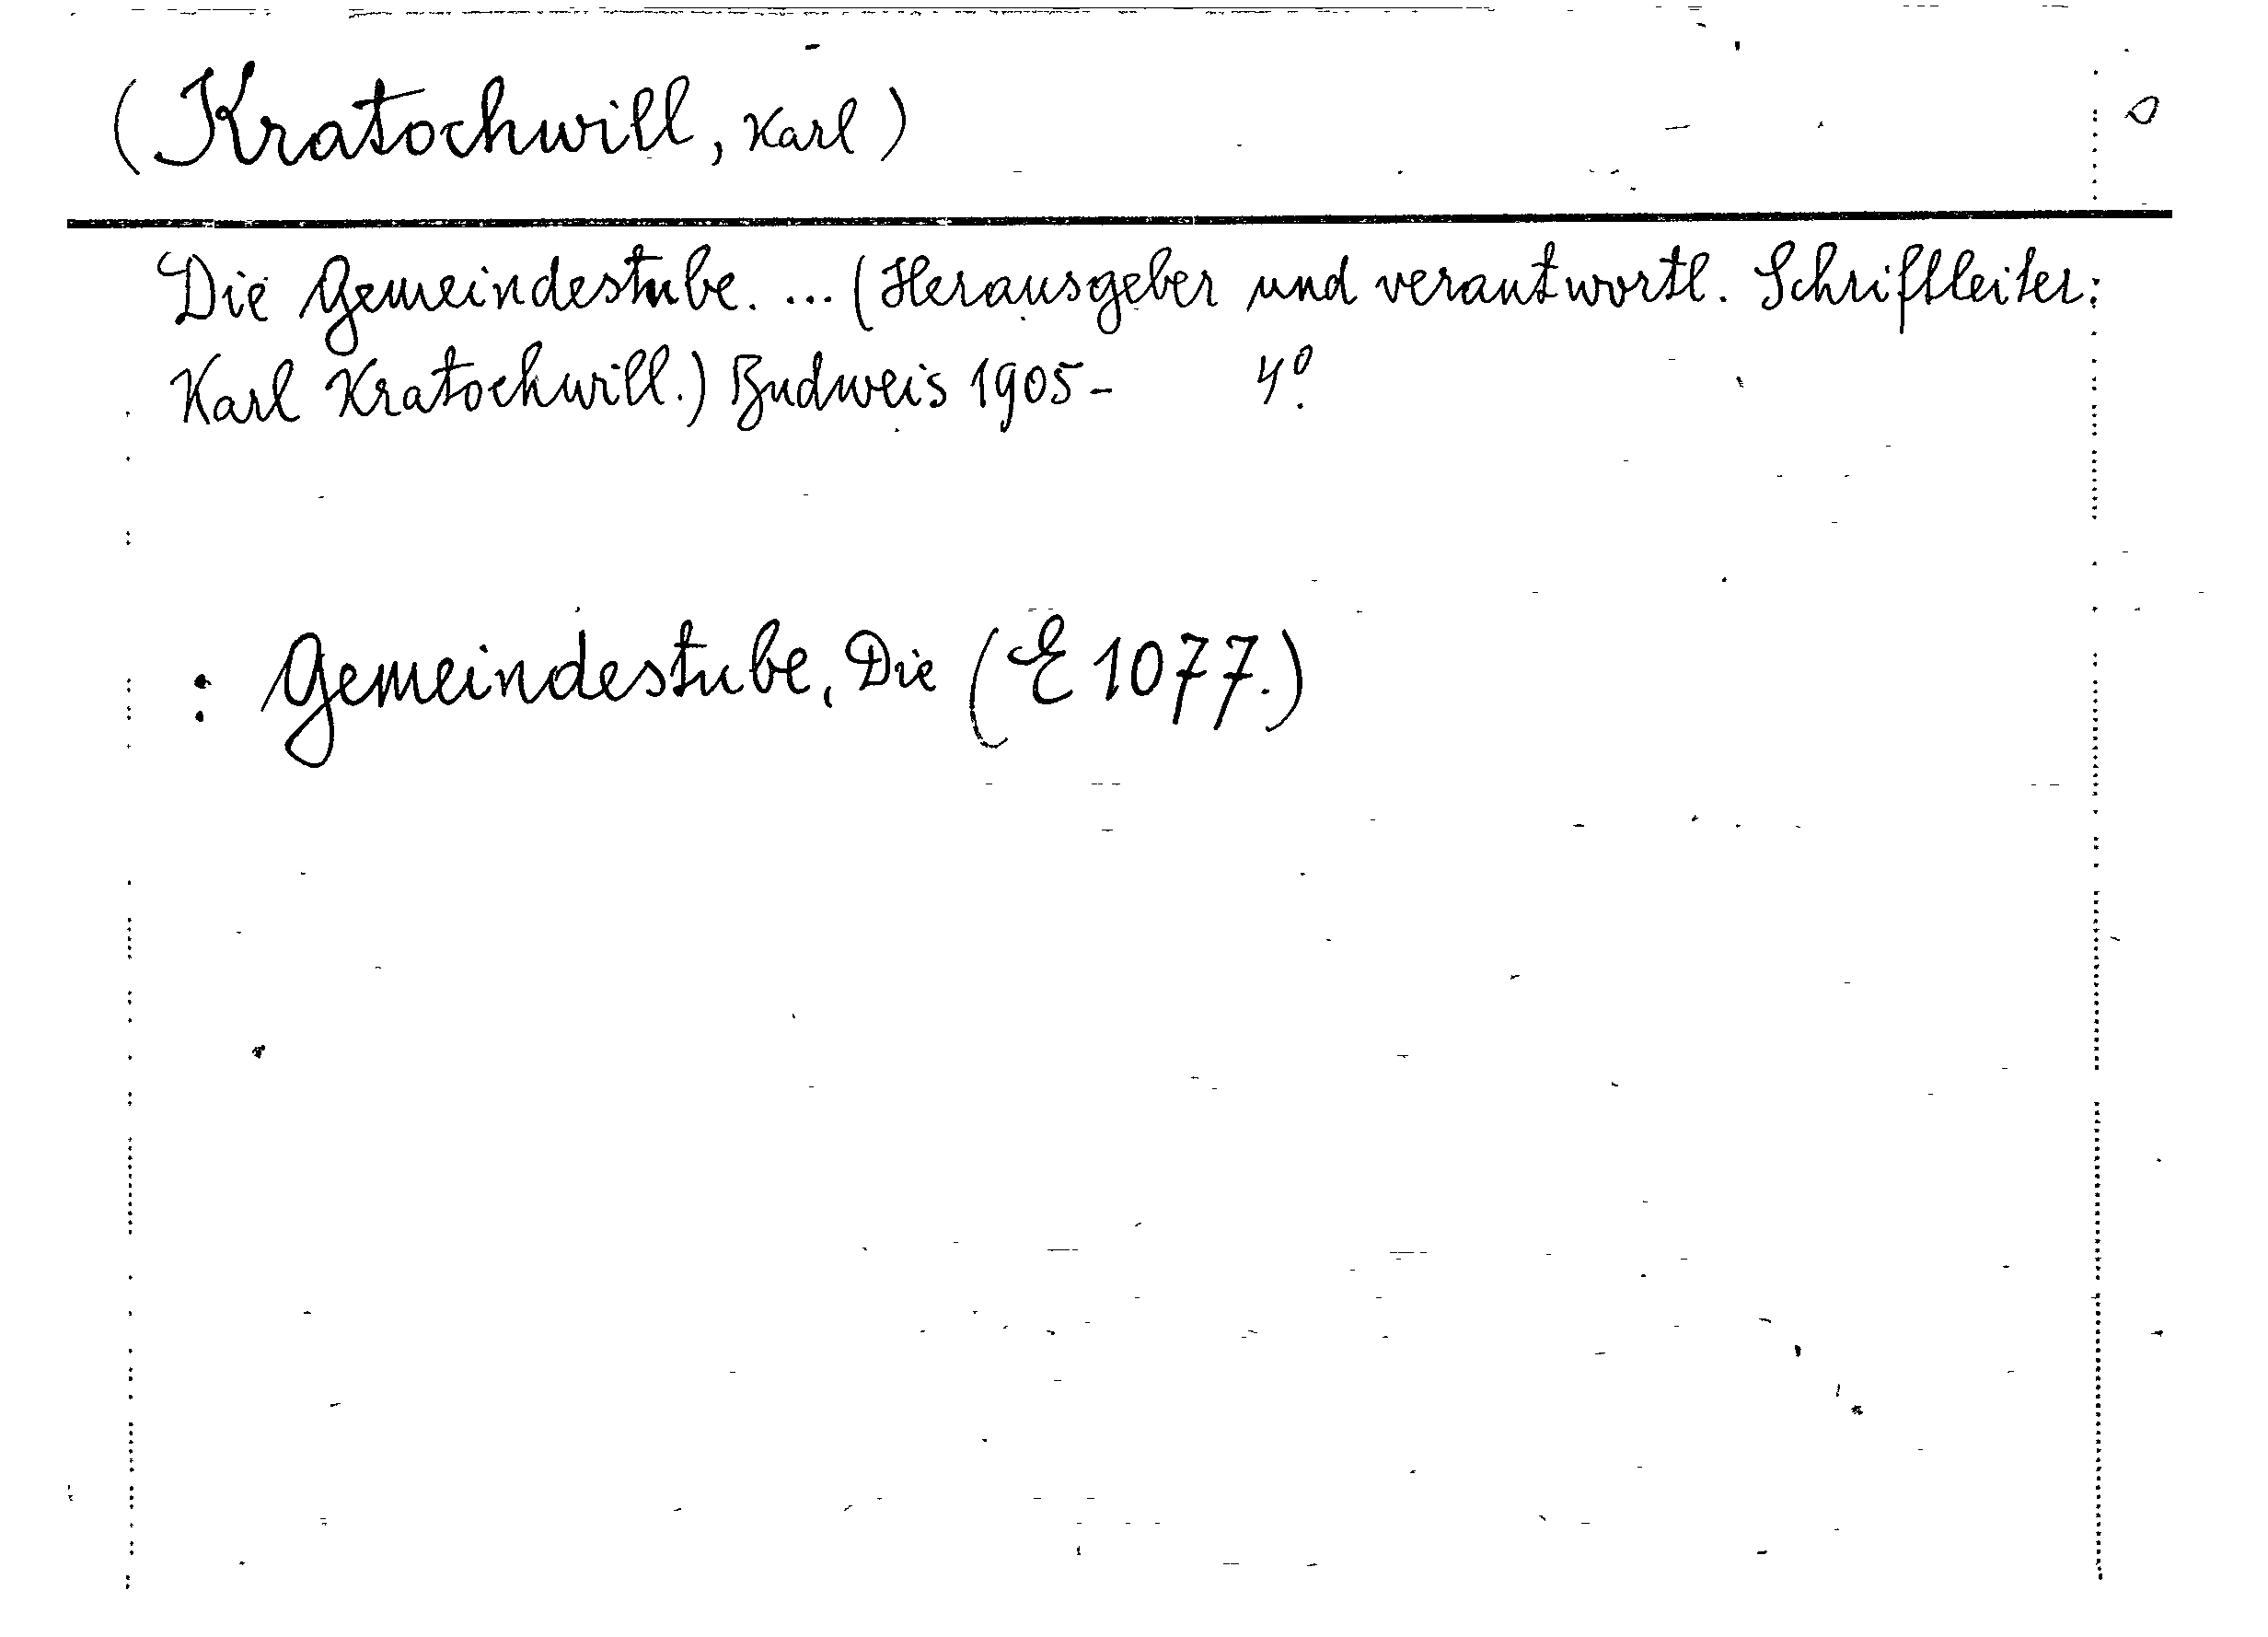 (Kratochwill, Karl)
Die Gemeindestube. ... (Herausgeber und verantwortl. Schriftleiter:
Karl Kratochwill.) Budweis 1905- 4°.
: Gemeindestube, Die (E 1077.)